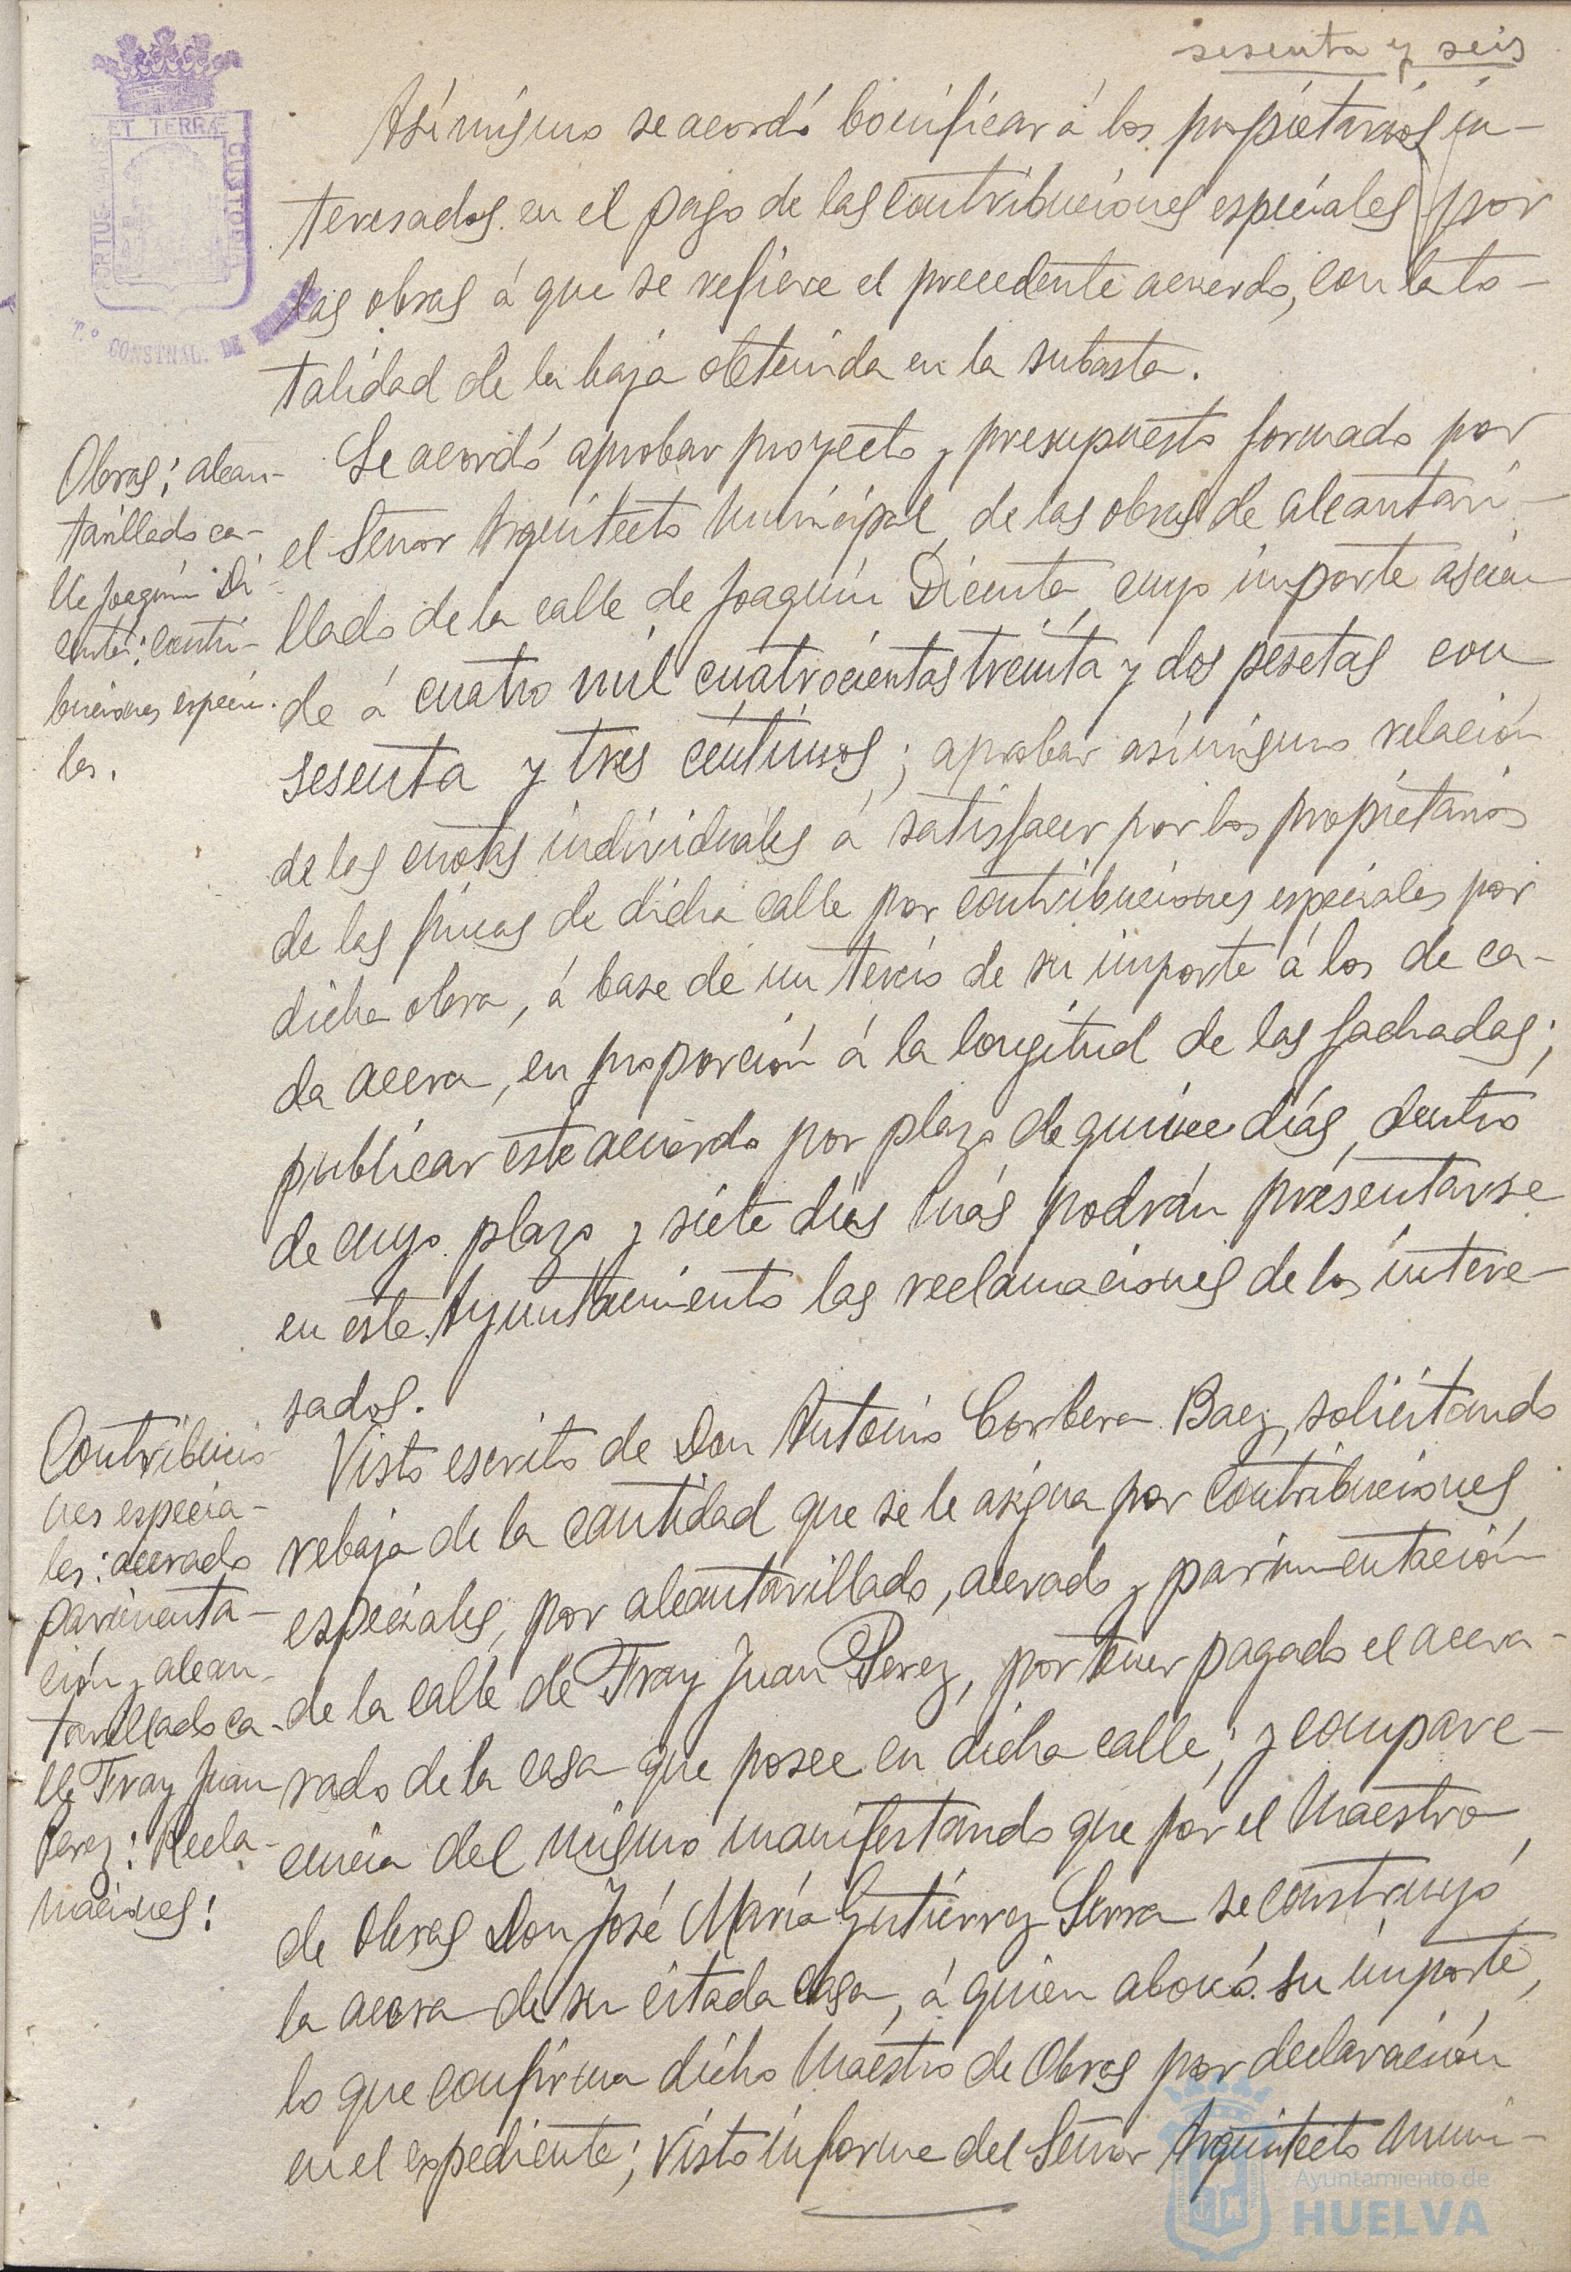 sesenta y seis
PORTUS MARIS ET TERRÆ CUSTODIA
CONSTNAL. DE
Asimismo se acordó bonificar á los propietarios in-
teresados en el pago de las contribuciones especiales por
las obras á que se refiere el precedente acuerdo, con la to-
talidad de la baja obtenida en la subasta.
Obras; alcan-
tarillado ca-
lle Joaquín Di-
centa; contri-
buciones especia-
les.
Se acordó aprobar proyecto y presupuesto formado por
el Señor Arquitecto Municipal, de las obras de alcantari-
llado de la calle de Joaquín Dicenta, cuyo importe ascien-
de á cuatro mil cuatrocientas treinta y dos pesetas con
sesenta y tres céntimos; aprobar asimismo relación
de las cuotas individuales á satisfacer por los propietarios
de las fincas de dicha calle por contribuciones especiales por
dicha obra, á base de un tercio de su importe á los de ca-
da acera, en proporción á la longitud de las fachadas;
publicar este acuerdo por plazo de quince días, dentro
de cuyo plazo y siete días más podrán presentarse
en este Ayuntamiento las reclamaciones de los intere-
sados.
Contribucio-
nes especia-
les: acerado
pavimenta-
ción y alcan-
tarillado ca-
lle Fray Juan
Perez: Recla-
maciones!
Visto escrito de Don Antonio Corbera Baez, solicitando
rebaja de la cantidad que se le asigna por contribuciones
especiales, por alcantarillado, acerado y pavimentación
de la calle de Fray Juan Perez, por tener pagado el acera-
rado de la casa que posee en dicha calle; y compare-
cencia del mismo manifestando que por el Maestro
de Obras Don José María Gutiérrez Serra se construyó
la acera de su citada casa, á quien abonó su importe,
lo que confirma dicho Maestro de Obras por declaración
en el expediente; visto informe del Señor Arquitecto Muni-
Ayuntamiento de
HUELVA